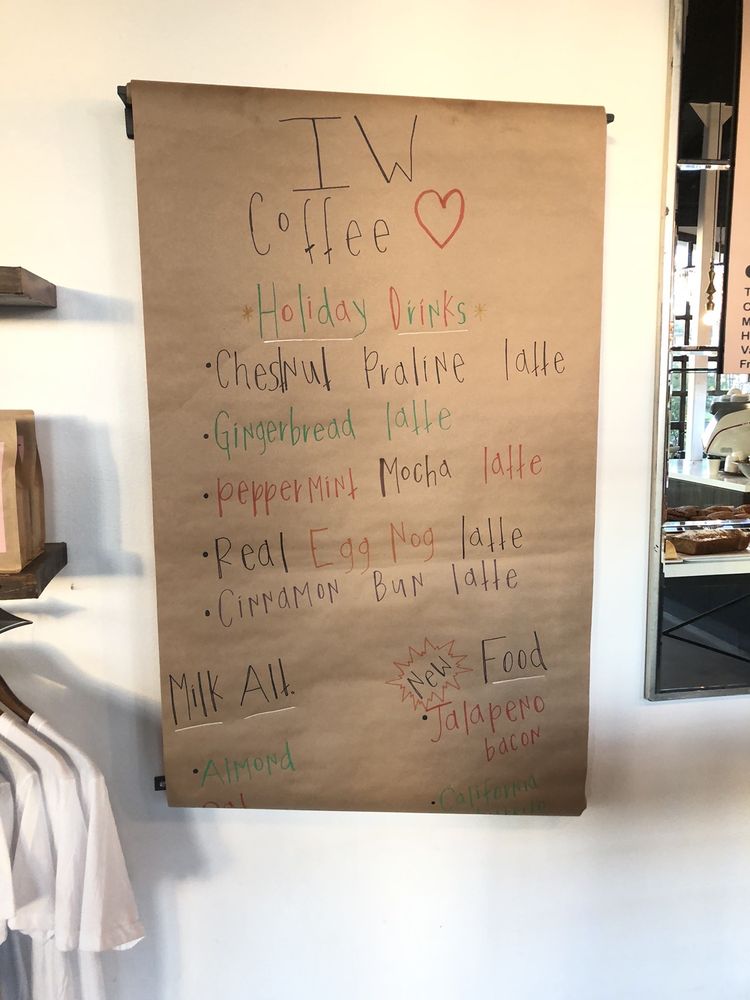 IW
Coffee
*Holiday Drinks*
• Chestnut Praline latte
• Gingerbread latte
• peppermint Mocha latte
• Real Egg Nog latte
• Cinnamon Bun latte
Milk Alt.
• Almond
Oat
New Food
• Jalapeno
bacon
• California